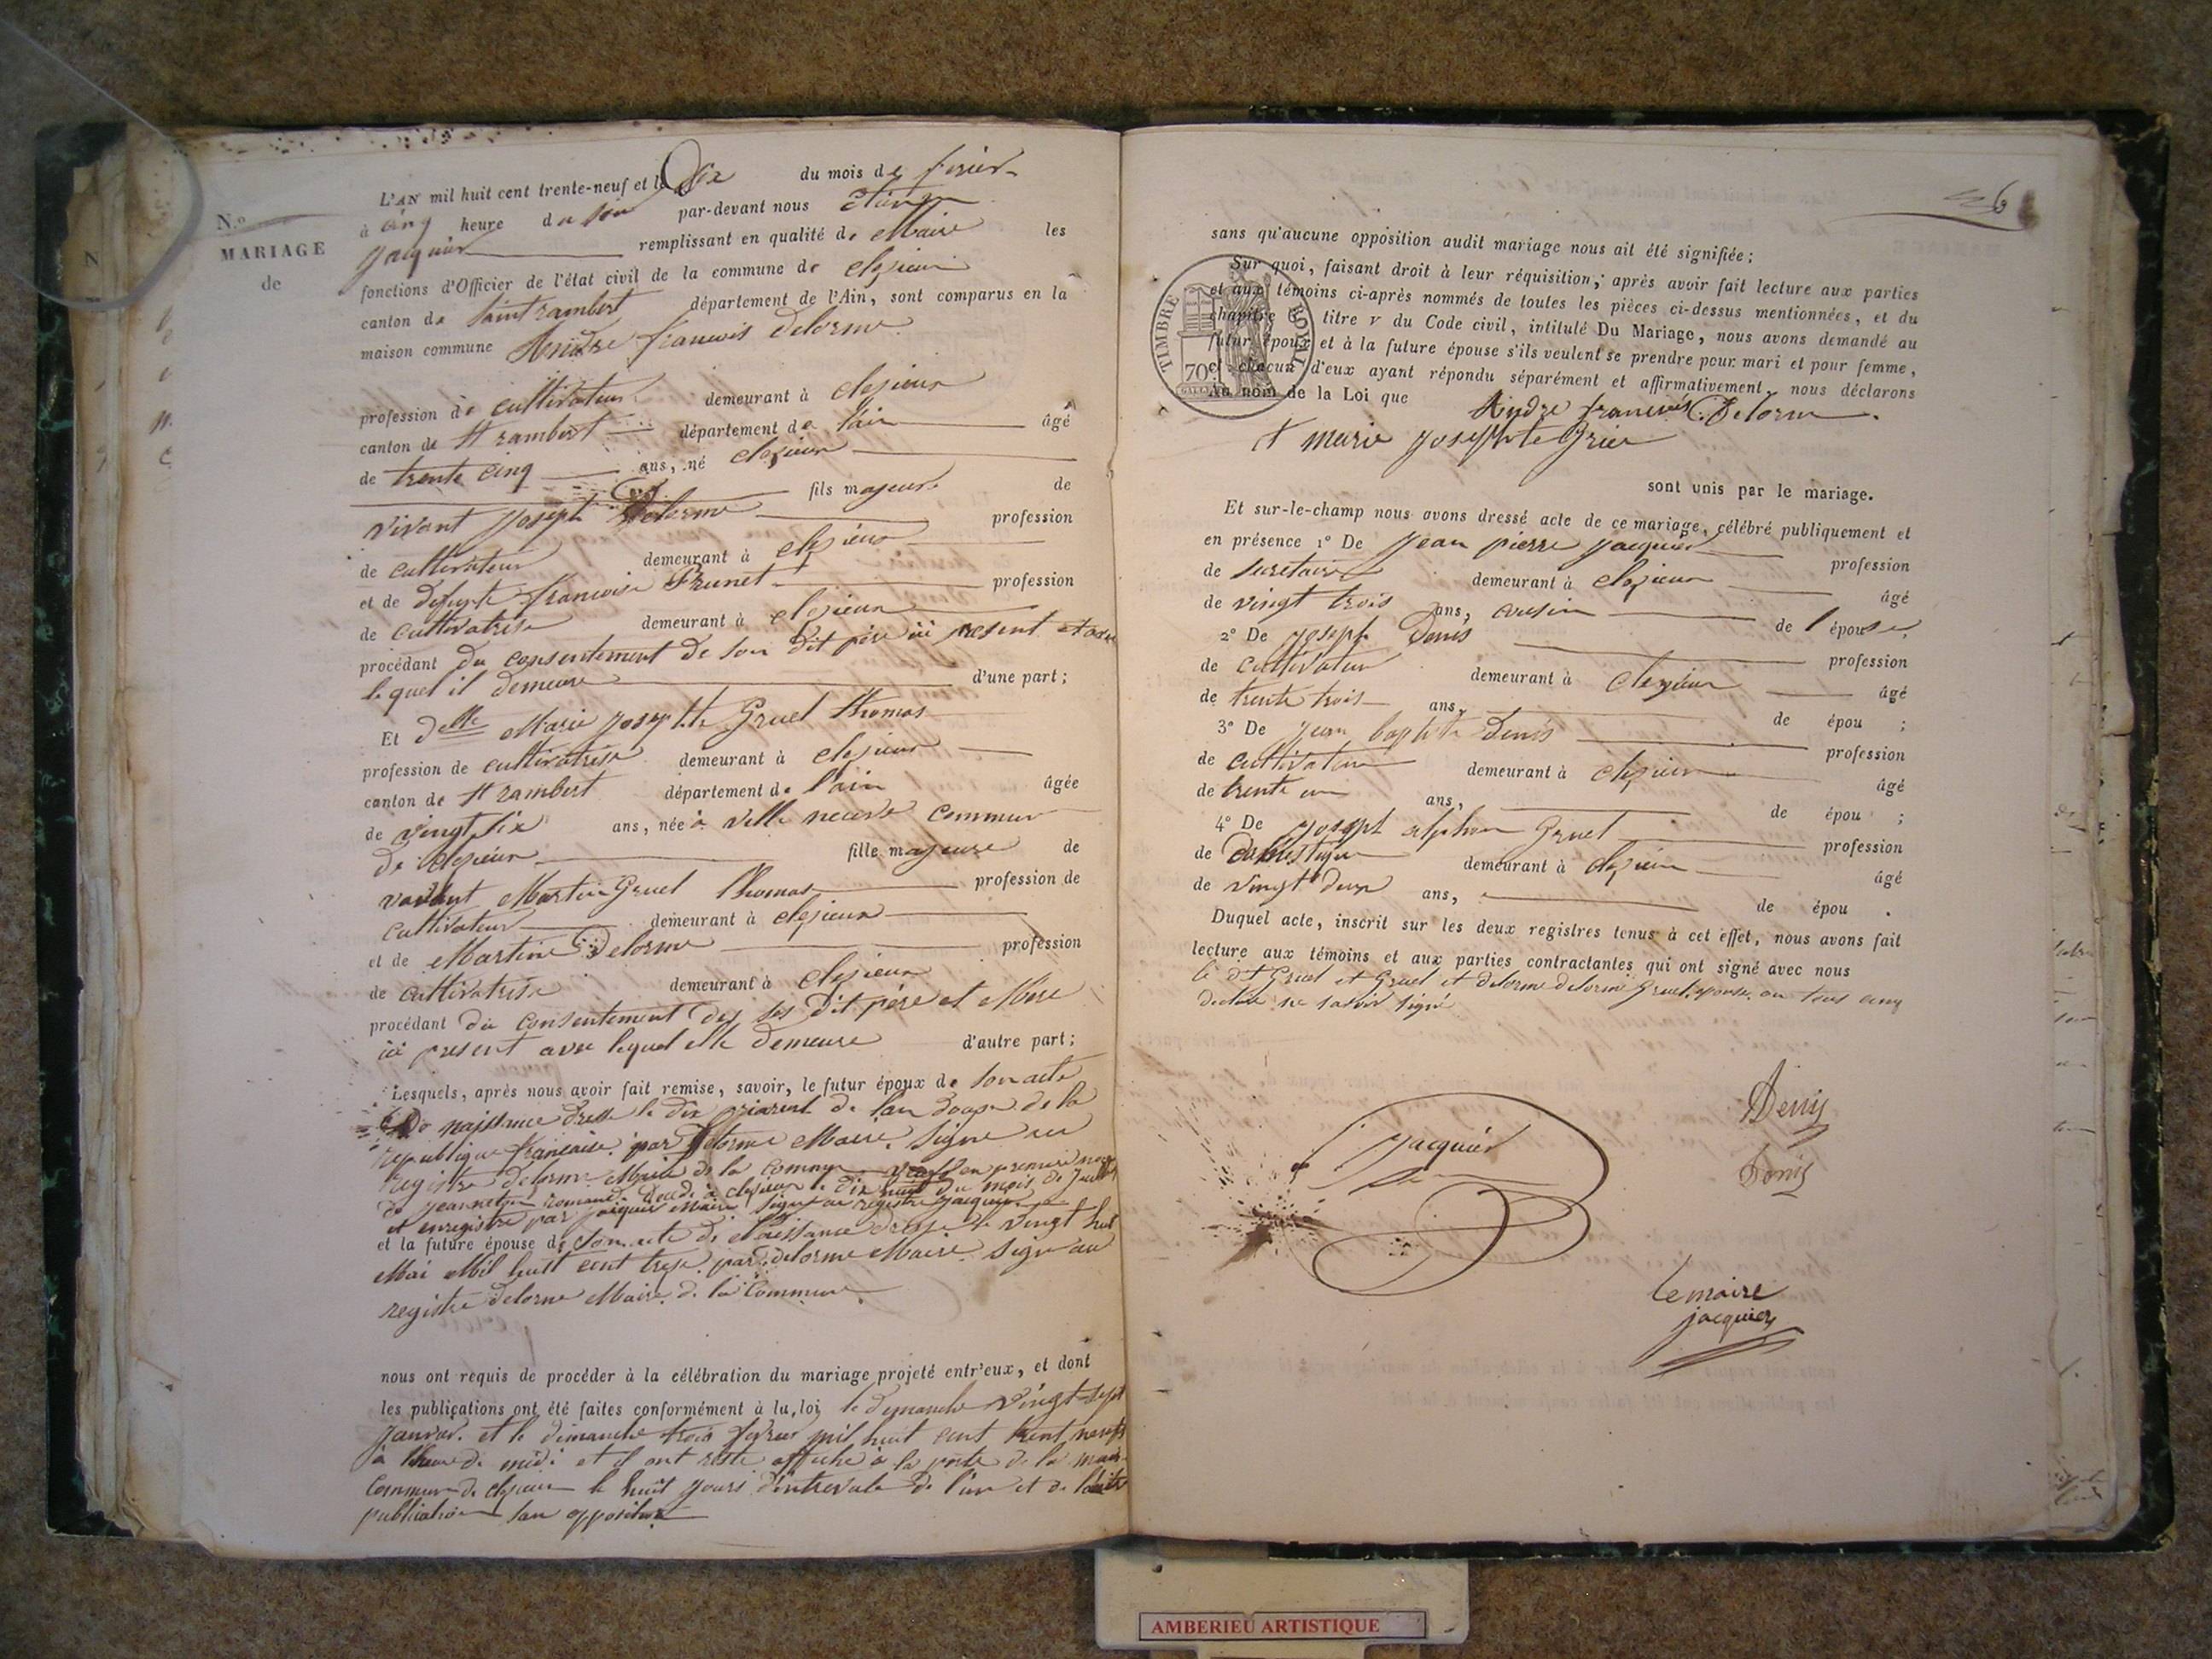 N.º
MARIAGE
de
L'AN mil huit cent trente-neuf et le dix du mois de fevrier
à cinq heure du soir par-devant nous
jacquier remplissant en qualité de Maire les
fonctions d'Officier de l'état civil de la commune de clezieu
canton de Saint rambert département de l'Ain, sont comparus en la
maison commune Andre francois Delorme
profession de cultivateur demeurant à clezieux
canton de St rambert département de l'ain âgé
de trente cinq ans, né clezieux
fils majeur de
vivant joseph Delorme profession
de cultivateur demeurant à clezieux
et de defunte francoise Brunet profession
de cultivatrise demeurant à clezieux
procédant du consentement de son dit père ici present et avec
lequel il demeure d'une part;
Et delle Marie josephte Gruel thomas
profession de cultivatrise demeurant à clezieux
canton de St rambert département de l'ain âgée
de vingt six ans, née à ville neuve commune
de clezieux fille majeure de
vivant Martin Gruel thomas profession de
cultivateur demeurant à clezieux
et de Martine Delorme profession
de cultivatrise demeurant à clezieux
procédant du consentement des ses dit père et Mere
ici present avec lequel elle demeure d'autre part;
Lesquels, après nous avoir fait remise, savoir, le futur époux de son acte
De naissance dresse le dix de l'an douze de la
republique francaise par Delorme Maire signe au
registre delorme Maire de la commune veuf en premiere noce
de jeannette decede a clezieux le dix huit du mois de juillet
et enregistre par jacquier Maire signe au registre jacquier
et la future épouse de son acte de Naissance dresse le vingt huit
Mai Mil huit cent treze par delorme Maire signe au
registre delorme Maire de la commune
nous ont requis de procéder à la célébration du mariage projeté entr'eux, et dont
les publications ont été faites conformément à la loi le dimanche vingt-sept
janvier et le dimanche trois fevrier mil huit cent trent neuf
a l'heure de midi et il ont reste affiche a la porte de la
commune de clezieux le huit jours d'intervale de l'un et de l'autre
publication san opposition
6
sans qu'aucune opposition audit mariage nous ait été signifiée;
Sur quoi, faisant droit à leur réquisition; après avoir fait lecture aux parties
et aux témoins ci-après nommés de toutes les pièces ci-dessus mentionnées, et du
chapitre 6 titre v du Code civil, intitulé Du Mariage, nous avons demandé au
futur époux et à la future épouse s'ils veulent se prendre pour mari et pour femme,
et chacun d'eux ayant répondu séparément et affirmativement, nous déclarons
au nom de la Loi que Andre francois Delorme
et marie josephte
TIMBRE ROYAL
70c
sont unis par le mariage.
Et sur-le-champ nous avons dressé acte de ce mariage, célébré publiquement et
en présence 1º De jean pierre jacquier profession
de secretaire demeurant à clezieux âgé
de vingt trois ans, cousin de l épouse,
2º De joseph Denis profession
de cultivateur demeurant à clezieux âgé
de trente trois ans, de épou ;
3º De jean baptiste Denis profession
de cultivateur demeurant à clezieux âgé
de trente un ans, de épou ;
4º De joseph Gruel profession
de domestique demeurant à clezieux âgé
de vingt deux ans, de épou .
Duquel acte, inscrit sur les deux registres tenus à cet effet, nous avons fait
lecture aux témoins et aux parties contractantes qui ont signé avec nous
le dt Gruel et Gruel et delorme delorme Gruel epouse on tous cinq
declare ne savoir signé
Denis
jacquier
Denis
le maire
jacquier
AMBERIEU ARTISTIQUE